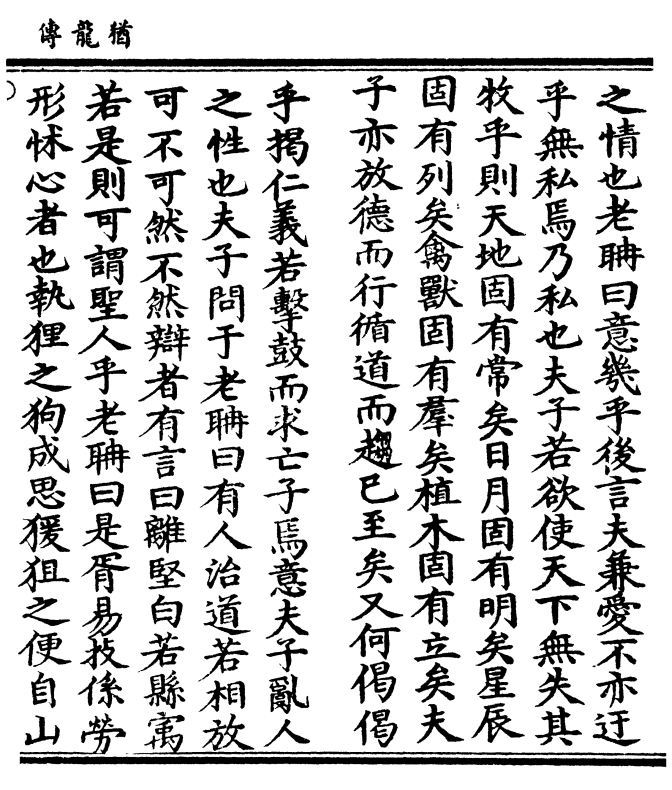 猶龍傳
之情也老聃曰意幾乎後言夫兼愛不亦迂
乎無私焉乃私也夫子若欲使天下無失其
牧乎則天地固有常矣日月固有明矣星辰
固有列矣禽獸固有羣矣植木固有立矣夫
子亦放德而行循道而趨已至矣又何偈偈
乎揭仁義若擊鼓而求亡子焉意夫子亂人
之性也夫子問于老聃曰有人治道若相放
可不可然不然辯者有言曰離堅白若縣㝢
若是則可謂聖人乎老聃曰是胥易技係勞
形怵心者也執狸之狗成思猨狙之便自山